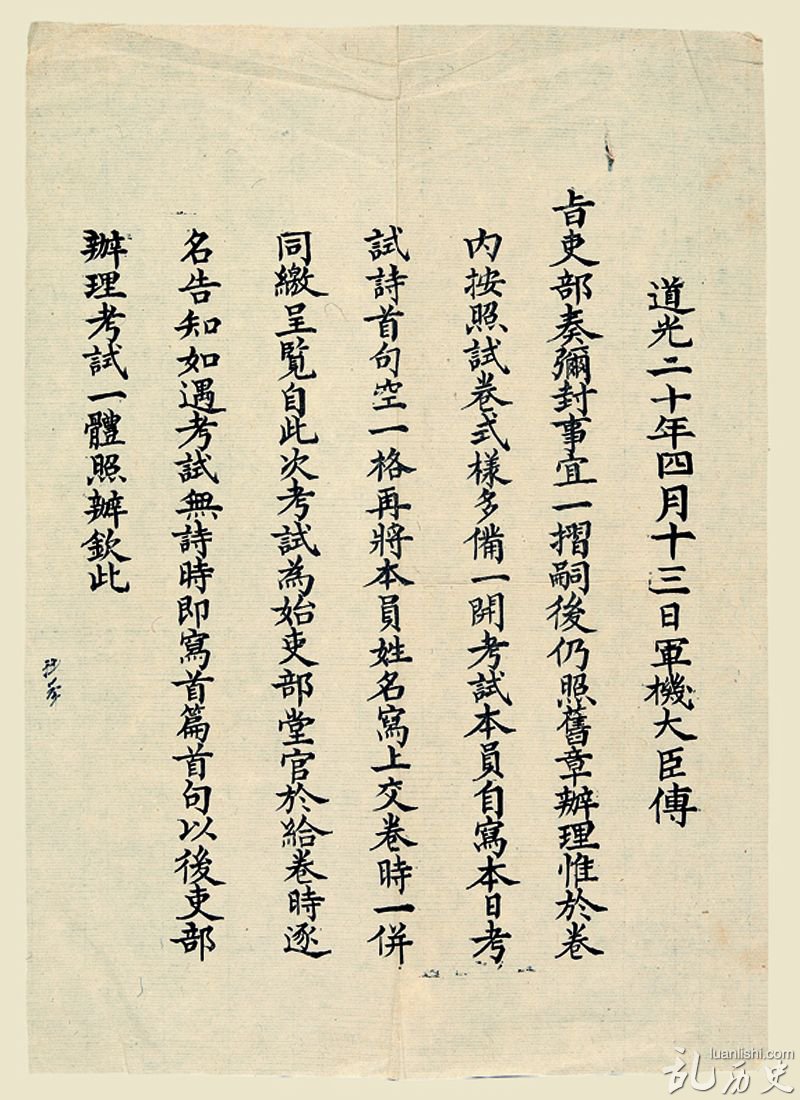 道光二十年四月十三日軍機大臣傳
旨吏部奏彌封事宜一摺嗣後仍照舊章辦理惟於卷
內按照試卷式樣多備一開考試本員自寫本日考
試詩首句空一格再將本員姓名寫上交卷時一併
同繳呈覽自此次考試為始吏部堂官於給卷時逐
名告知如遇考試無詩時即寫首篇首句以後吏部
辦理考試一體照辦欽此
luanlishi.com
乱历史